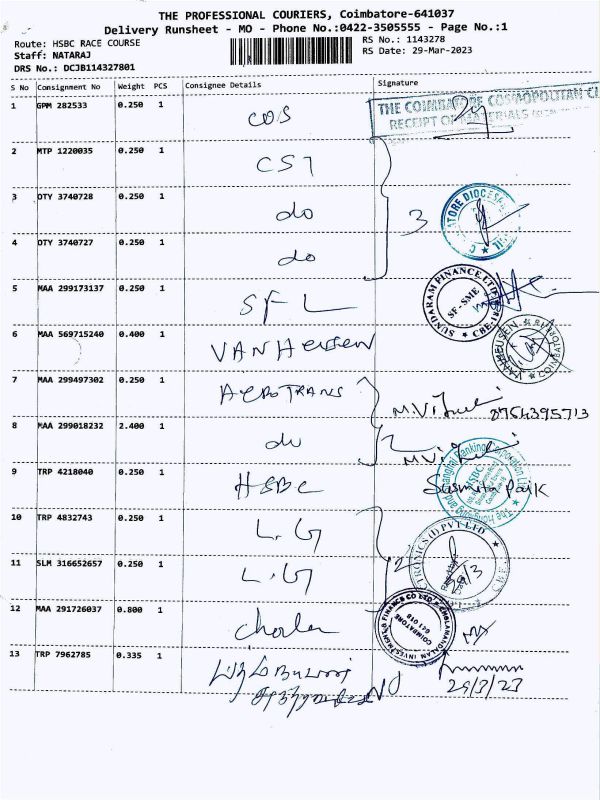 THE PROFESSIONAL COURIERS, Coimbatore-641037
Delivery Runsheet - MO - Phone No.:0422-3505555 - Page No.:1
Route: HSBC RACE COURSE RS No.: 1143278
Staff: NATARAJ RS Date: 29-Mar-2023
DRS No.: DCJB114327801
S No Consignment No Weight PCS Consignee Details Signature
1 GPM 282533 0.250 1 COS
THE COIMBATORE COSMOPOLITAN CL
RECEIPT OF MATERIALS
2 MTP 1220035 0.250 1 CSI
3 OTY 3740728 0.250 1 do 3
4 OTY 3740727 0.250 1 do
5 MAA 299173137 0.250 1 SFL
SUNDARAM FINANCE LTD
SF-SME
6 MAA 569715240 0.400 1 VAN Heusen
VANHEUSEN
COIMBATORE
7 MAA 299497302 0.250 1 AEROTRANS
8 MAA 299018232 2.400 1 do 2
9 TRP 4218040 0.250 1 HSBC Susmita Paik
HSBC
10 TRP 4832743 0.250 1 L.G
11 SLM 316652657 0.250 1 L.G 2
12 MAA 291726037 0.800 1 Chola
CHOLAMANDALAM INVESTMENT & FINANCE CO LTD
COIMBATORE
641 018
13 TRP 7962785 0.335 1
29/3/23